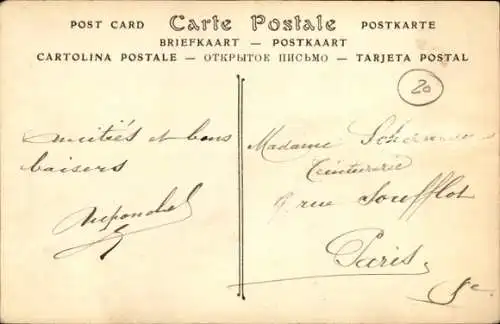 POST CARD Carte Postale POSTKARTE
BRIEFKAART — POSTKAART
CARTOLINA POSTALE — ОТКРЫТОЕ ПИСЬМО — TARJETA POSTAL
20
Amitiés et bons
baisers
Madame
Teinturerie
rue Soufflot
Paris.
5e